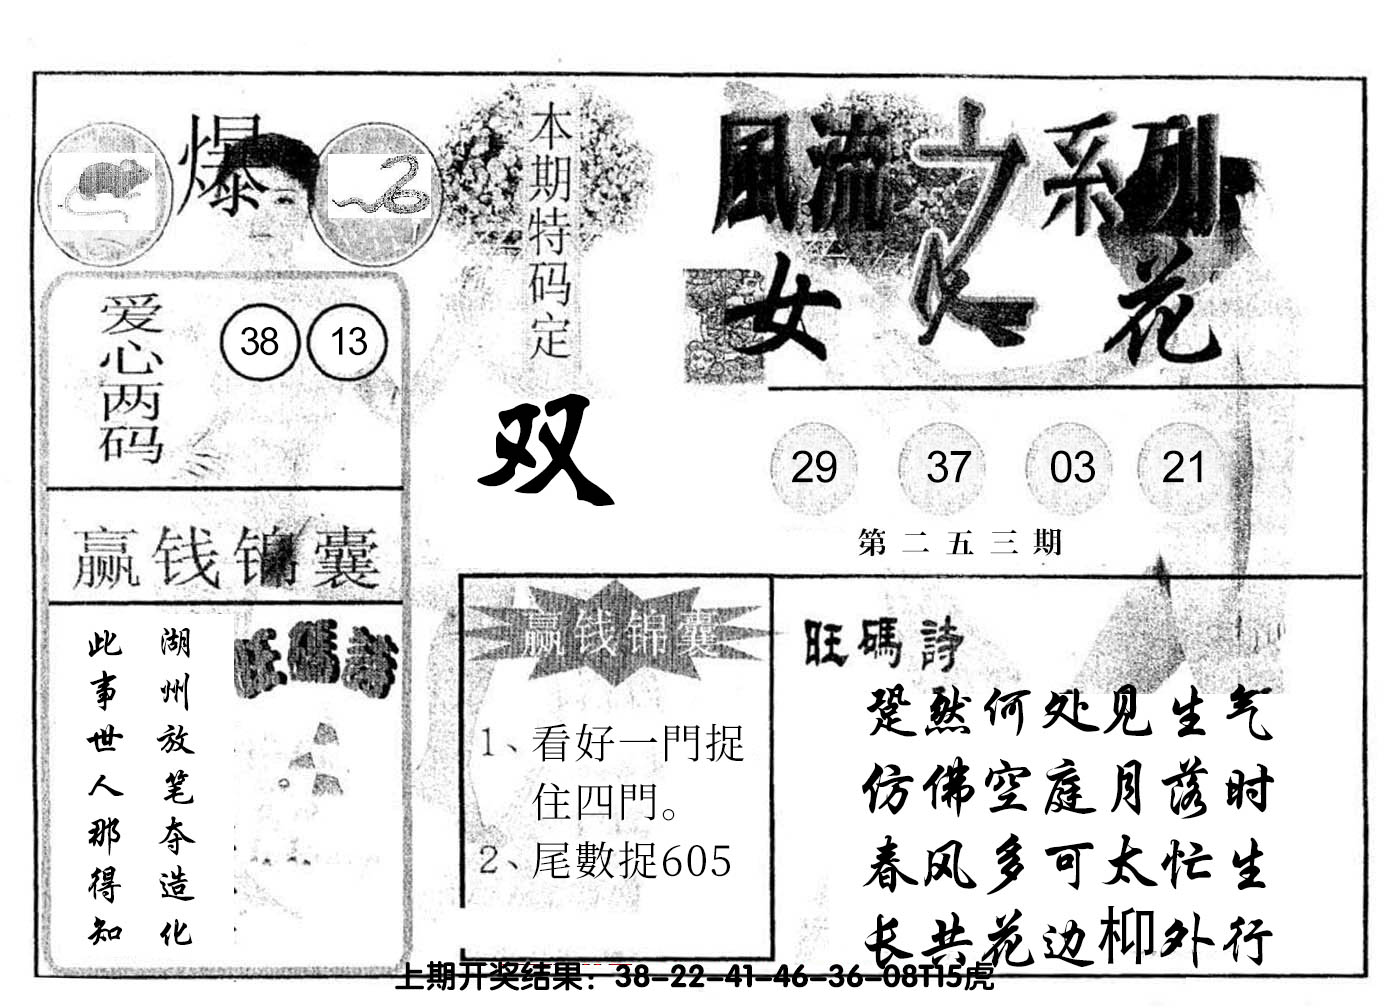 爆
本期特码定
双
風流之系列
女人花
爱心两码
38 13
29 37 03 21
第二五三期
赢钱锦囊
旺碼詩
湖州放笔夺造化
此事世人那得知
赢钱锦囊
1、看好一門捉
住四門。
2、尾數捉605
旺碼詩
跫然何处见生气
仿佛空庭月落时
春风多可太忙生
长共花边柳外行
上期开奖结果：38-22-41-46-36-08T15虎